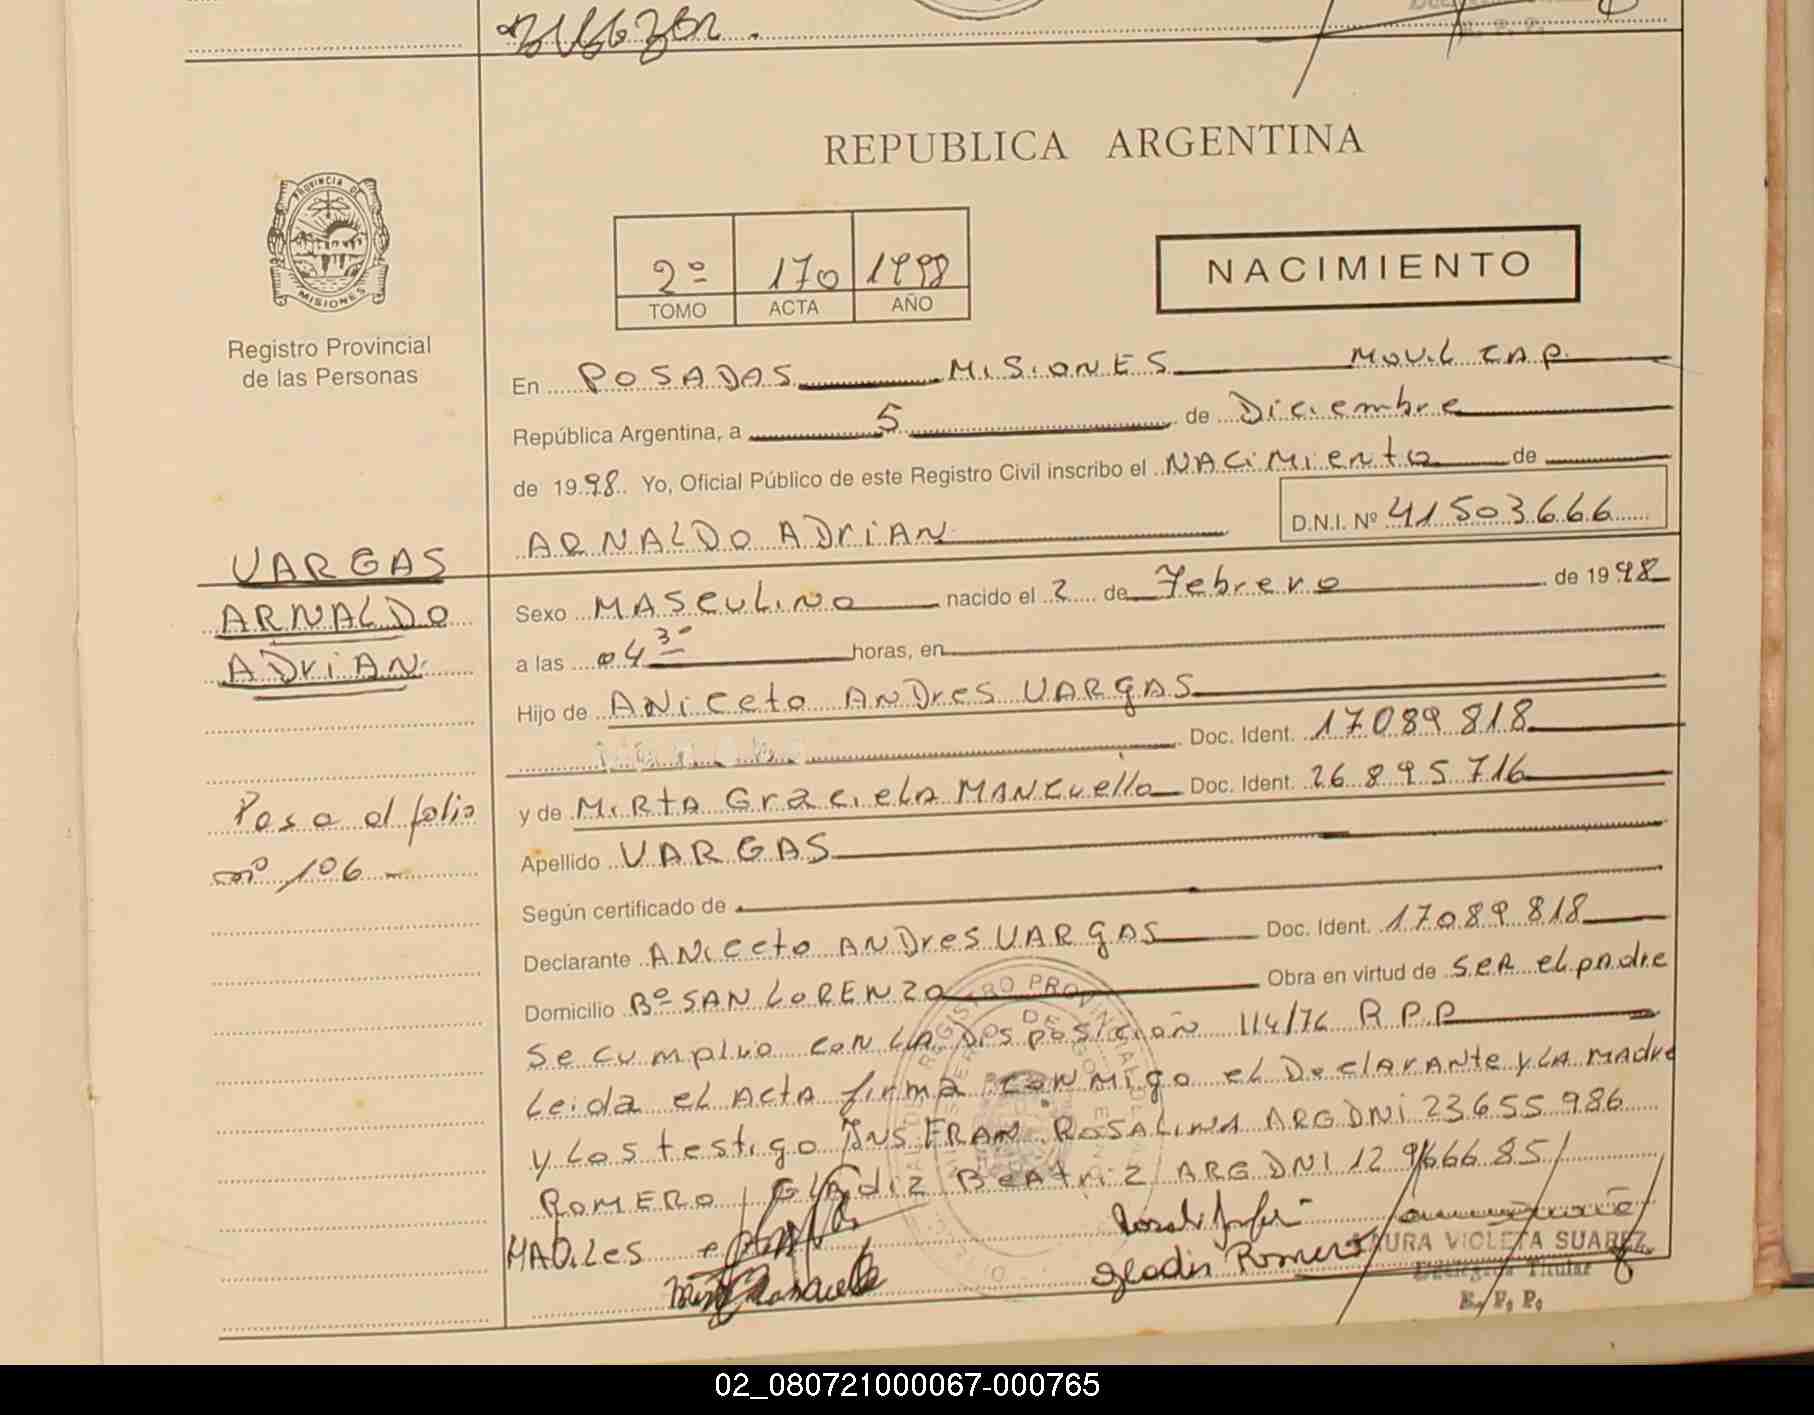 REPUBLICA ARGENTINA
PROVINCIA DE
MISIONES
Registro Provincial
de las Personas
2º 170 1998
TOMO ACTA AÑO
NACIMIENTO
En POSADAS MISIONES MOVIL CAP.
República Argentina, a 5 de Diciembre
de 1998. Yo, Oficial Público de este Registro Civil inscribo el NACIMIENTO de
ARNALDO ADRIAN D.N.I. Nº 41503666
VARGAS
ARNALDO
ADRIAN
Sexo MASCULINO nacido el 2 de Febrero de 1998
a las 04 30 horas, en
Hijo de ANICETO ANDRES VARGAS
Doc. Ident. 17089818
y de MIRTA GRACIELA MANCUELLO Doc. Ident. 26895716
Pasa al folio
nº 106
Apellido VARGAS
Según certificado de
Declarante ANICETO ANDRES VARGAS Doc. Ident. 17089818
Domicilio Bº SAN LORENZO Obra en virtud de SER el padre
Se cumplio con LA Disposicion 114/76 R P.P
Leida el ACTA firma conmigo el Declarante y LA MADRE
y Los testigo FRAN ROSALINA ARG DNI 23655986
ROMERO GLADIZ BEATRIZ ARG DNI 12966685
Gladis Romero
LAURA VIOLETA SUAREZ
Titular
R. P. P.
REGISTRO PROVINCIAL DE
02_080721000067-000765